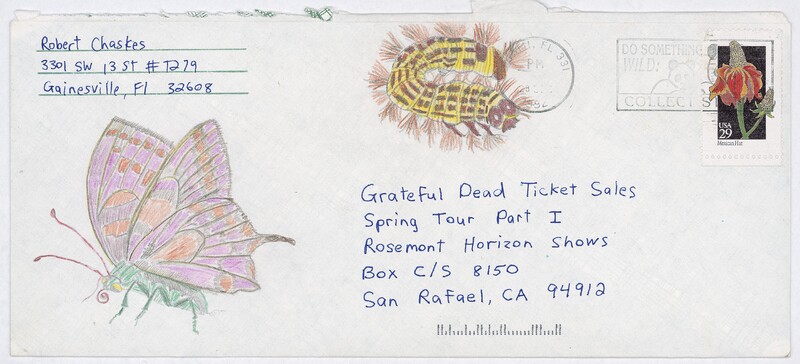 Robert Chaskes
3301 SW 13 St # T279
Gainesville, Fl 32608
FL 331
PM
DO SOMETHING
WILD:
COLLECT ST
USA
29
Mexican Hat
Grateful Dead Ticket Sales
Spring Tour Part I
Rosemont Horizon Shows
Box C/S 8150
San Rafael, CA 94912